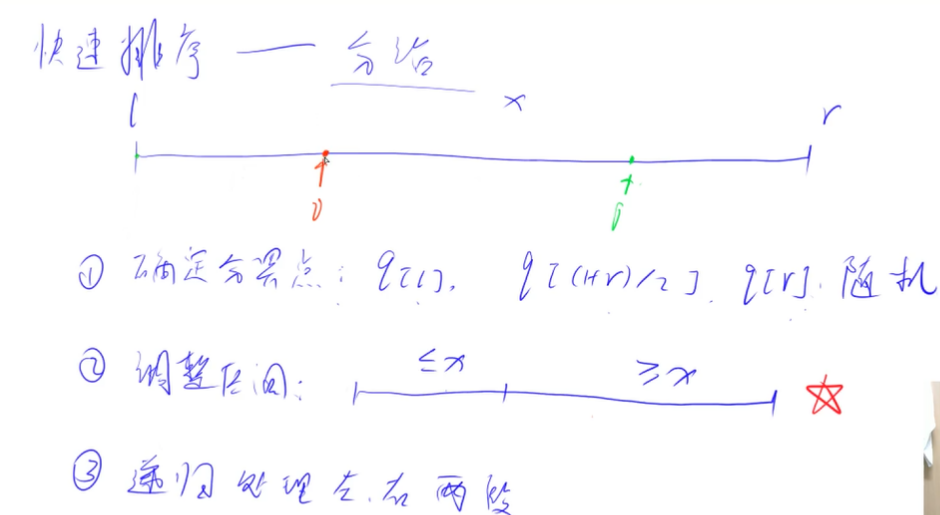 快速排序 — 分治
x
l r
i j
① 确定分界点：q[l]， q[(l+r)/2]， q[r]，随机
② 调整区间： ≤x ≥x
③ 递归处理左、右两段